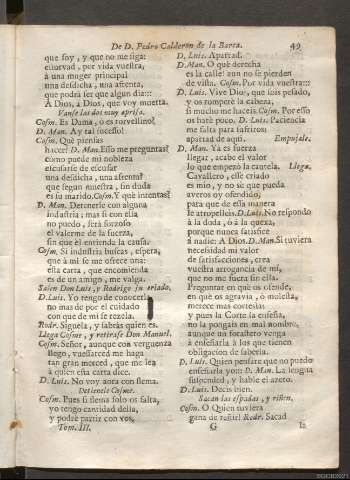 De D. Pedro Calderon de la Barca. 49
que soy, y que no me siga:
estorvad, por vida vuestra,
à una muger principal
una desdicha, una afrenta,
que podrà ser que algun dia:::
A Dios, à Dios, que voy muerta.
Vanse las dos muy aprisa.
Cosm. Es Dama, ò es torvellino?
D. Man. Ay tal sucesso!
Cosm. Què piensas
hacer? D. Man. Esso me preguntas?
como puede mi nobleza
escusarse de escusar
una desdicha, una afrenta?
que segun muestra, sin duda
es su marido. Cosm. Y què intentas?
D. Man. Detenerle con alguna
industria; mas si con ella
no puedo, serà forzoso
el valerme de la fuerza,
sin que èl entienda la causa.
Cosm. Si industria buscas, espera,
que à mi se me ofrece una:
esta carta, que encomienda
es de un amigo, me valga.
Salen Don Luis, y Rodrigo su criado.
D. Luis. Yo tengo de conocerla,
no mas de por el cuidado
con que de mì se rezela.
Rodr. Siguela, y sabràs quien es.
Llega Cosme, y retirase Don Manuel.
Cosm. Señor, aunque con verguenza
llego, vuessarced me haga
tan gran merced, que me lea
à quien esta carta dice.
D. Luis. No voy aora con flema.
Detienele Cosme.
Cosm. Pues si flema solo os falta,
yo tengo cantidad della,
y podrè partir con vos.
Tom. III.
D. Luis. Apartad.
D. Man. O què derecha
es la calle! aun no se pierden
de vista. Cosm. Por vida vuestra:::
D. Luis. Vive Dios, que sois pesado,
y os romperè la cabeza,
si mucho me haceis. Cosm. Por esso
os harè poco. D. Luis. Paciencia
me falta para sufriros:
apartad de aqui. Empujale.
D. Man. Ya es fuerza
llegar, acabe el valor
lo que empezò la cautela. Llega.
Cavallero, esse criado
es mio, y no sè que pueda
averos oy ofendido,
para que de essa manera
le atropelleis. D. Luis. No respondo
à la duda, ò à la quexa,
porque nunca satisfice
à nadie: A Dios. D. Man. Si tuviera
necessidad mi valor
de satisfacciones, crea
vuestra arrogancia de mì,
que no me fuera sin ella.
Preguntar en què os ofende,
en què os agravia, ò molesta,
merece mas cortesias:
y pues la Corte la enseña,
no la pongais en mal nombre,
aunque un forastero venga
à enseñarla à los que tienen
obligacion de saberla.
D. Luis. Quien pensàre que no puedo
enseñarla yo::: D. Man. La lengua
suspended, y hable el azero.
D. Luis. Decis bien.
Sacan las espadas, y riñen.
Cosm. O Quien tuviera
gana de reñir! Rodr. Sacad
G la